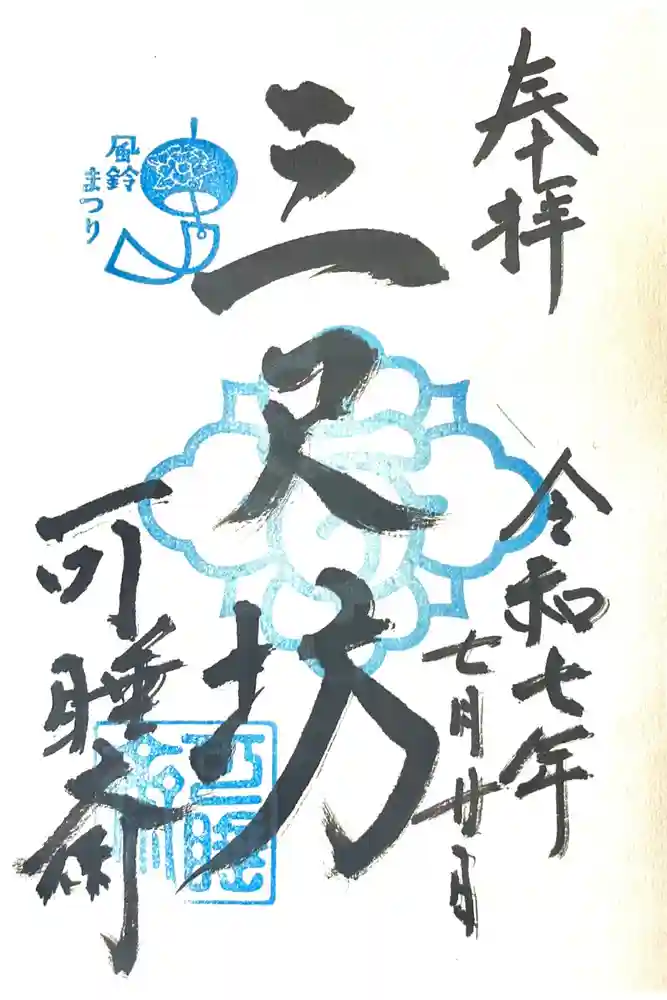 奉拝
令和七年
七月廿日
三尺坊
可睡斎
風鈴
まつり